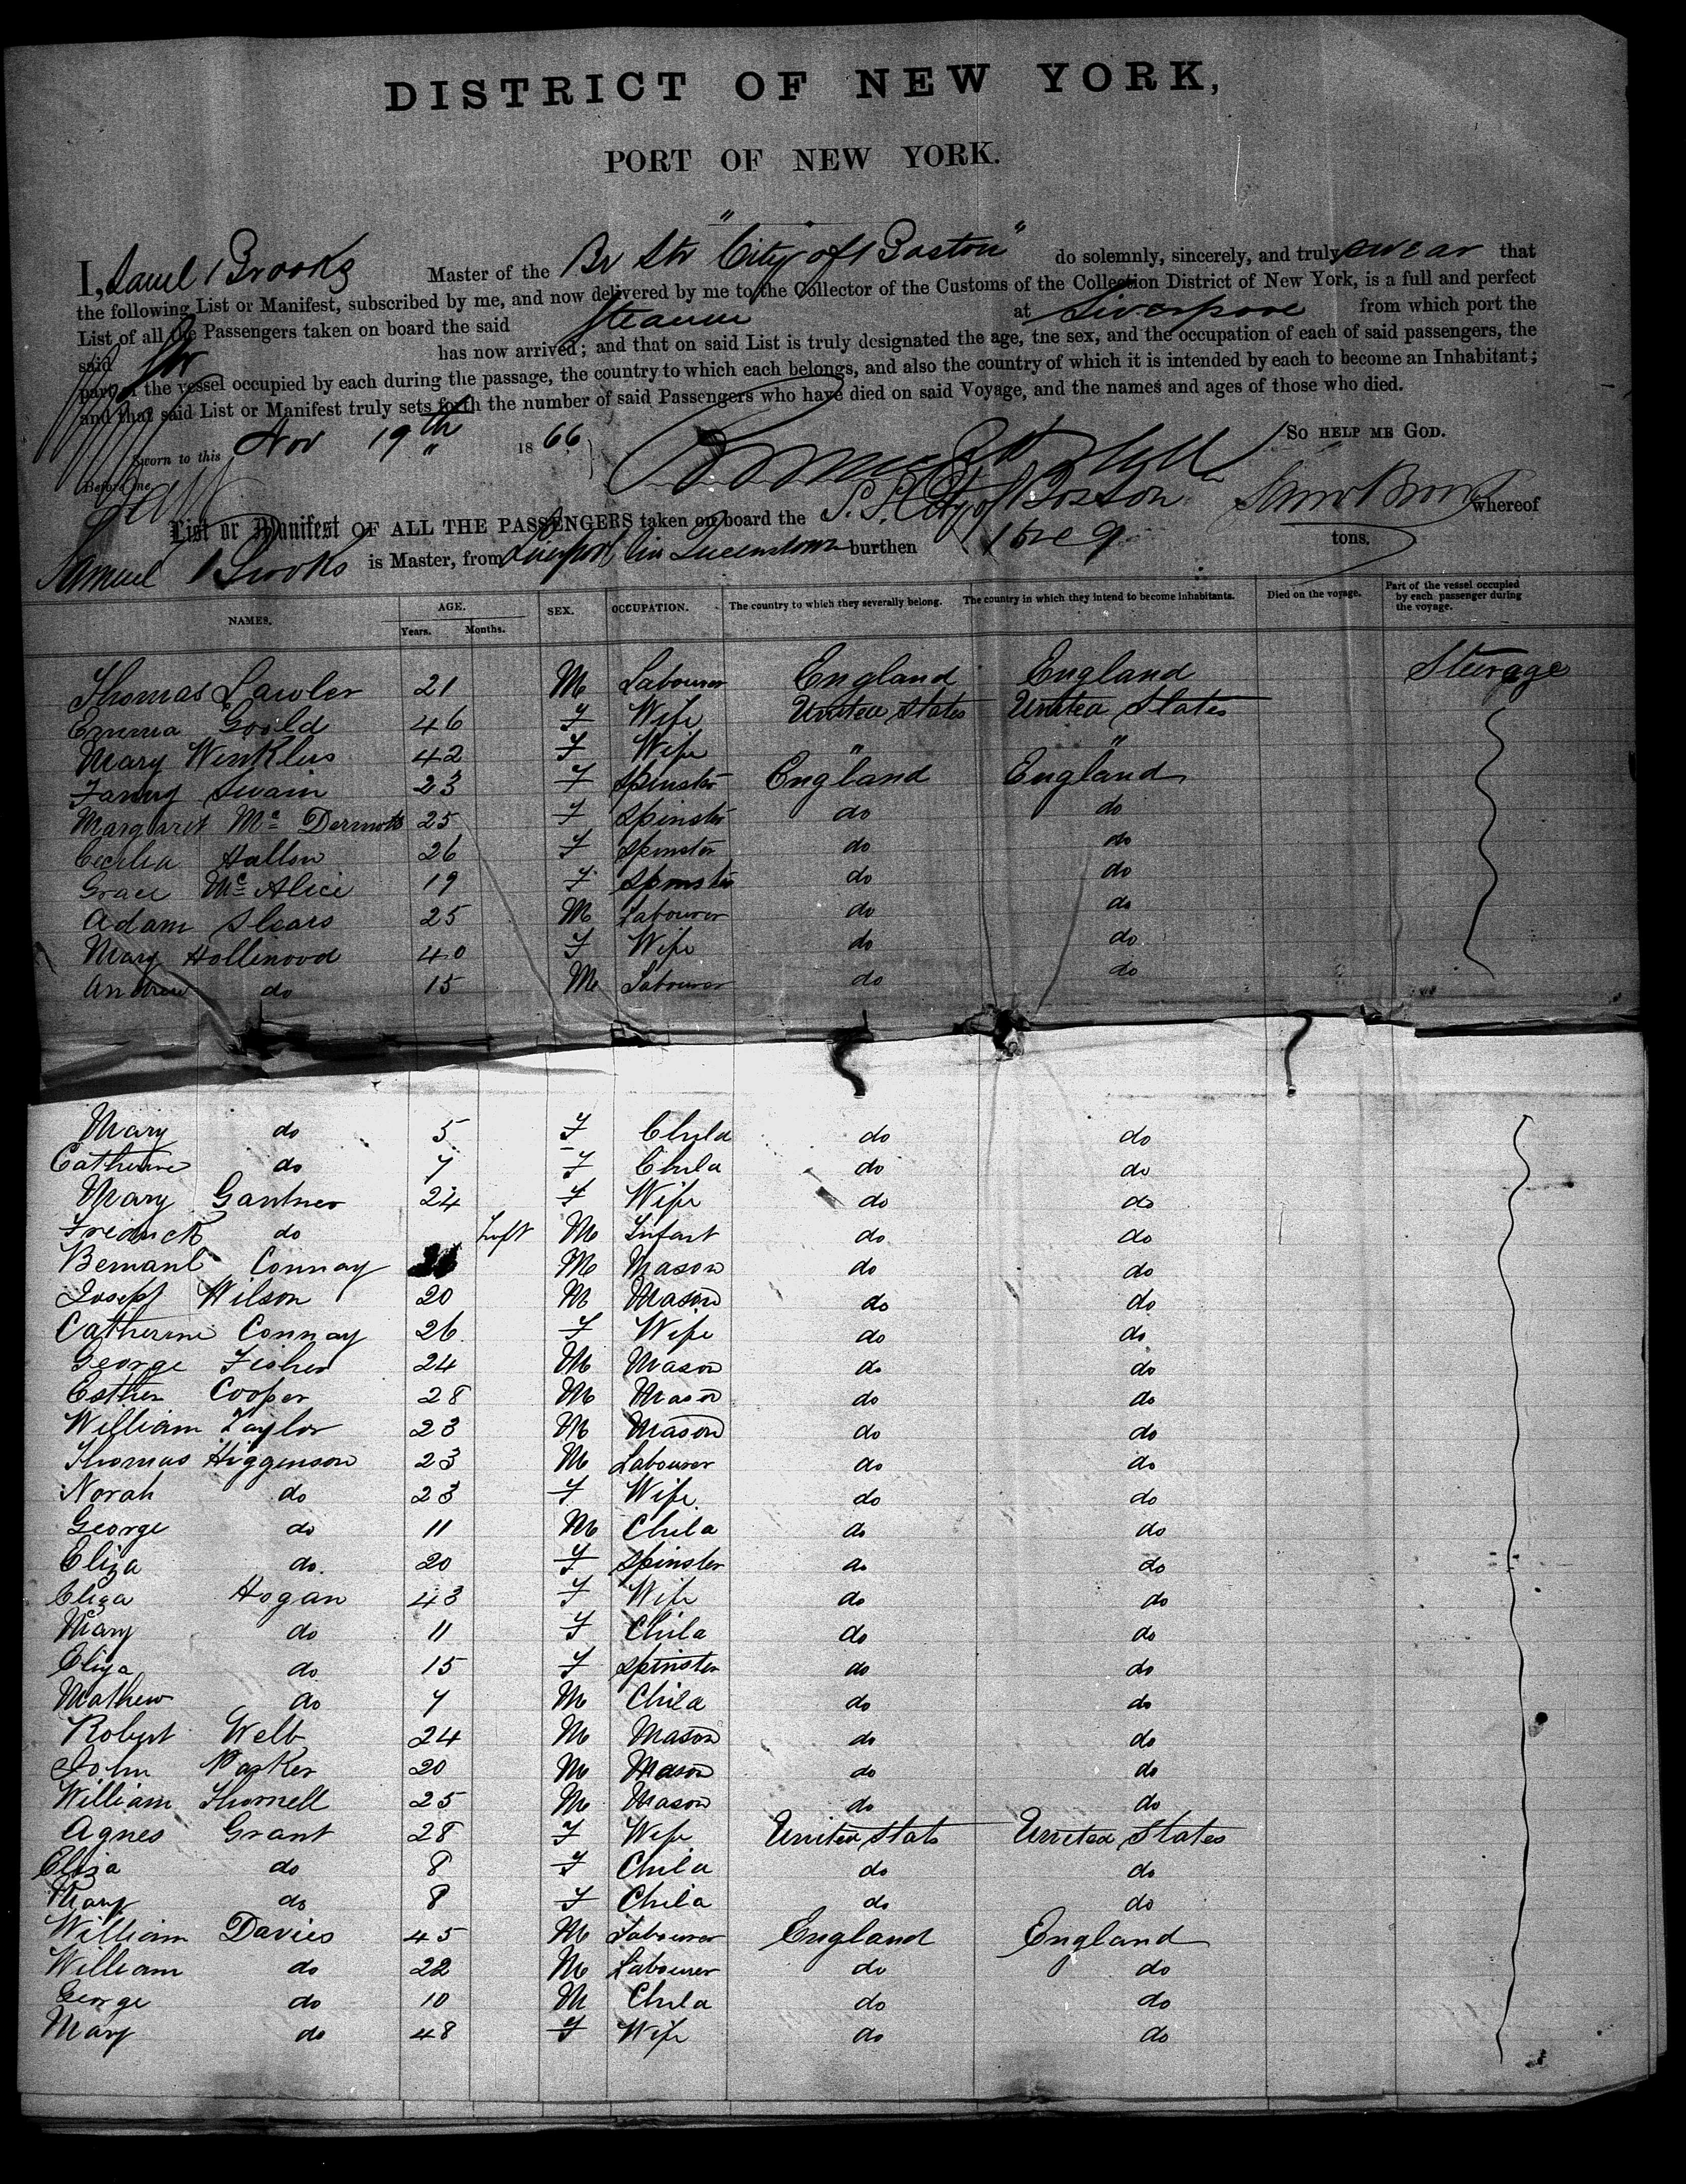 DISTRICT OF NEW YORK,
PORT OF NEW YORK.
I, Saml Brooks Master of the Br Str "City of Boston" do solemnly, sincerely, and truly swear that
the following List or Manifest, subscribed by me, and now delivered by me to the Collector of the Customs of the Collection District of New York, is a full and perfect
List of all the Passengers taken on board the said Steamer at Liverpool from which port the
said Str has now arrived; and that on said List is truly designated the age, the sex, and the occupation of each of said passengers, the
part of the vessel occupied by each during the passage, the country to which each belongs, and also the country of which it is intended by each to become an Inhabitant;
and that said List or Manifest truly sets forth the number of said Passengers who have died on said Voyage, and the names and ages of those who died.
Sworn to this Nov 19th 1866 So HELP ME GOD.
Before me
List or Manifest OF ALL THE PASSENGERS taken on board the S.S. City of Boston whereof
Samuel Brooks is Master, from Liverpool via Queenstown burthen tons.
NAMES. AGE. Years. Months. SEX. OCCUPATION. The country to which they severally belong. The country in which they intend to become inhabitants. Died on the voyage. Part of the vessel occupied by each passenger during the voyage.
Thomas Lawler 21 M Labourer England England Steerage
Emma Goold 46 F Wife United States United States
Mary Winklus 42 F Wife " "
Fanny Swain 23 F Spinster England England
Margaret Mc Dermott 25 F Spinster do do
Cecilia Hallon 26 F Spinster do do
Grace Mc Alice 19 F Spinster do do
Adam Slears 25 M Labourer do do
Mary Hollinood 40 F Wife do do
Andrew do 15 M Labourer do do
Mary do 5 F Child do do
Catherine do 7 F Child do do
Mary Gantner 24 F Wife do do
Fredrick do Inft M Infant do do
Bernard Connay M Mason do do
Joseph Wilson 20 M Mason do do
Catherine Connay 26 F Wife do do
George Fisher 24 M Mason do do
Esther Cooper 28 M Mason do do
William Taylor 23 M Mason do do
Thomas Higginson 23 M Labourer do do
Norah do 23 F Wife do do
George do 11 M Child do do
Eliza do 20 F Spinster do do
Eliza Hogan 43 F Wife do do
Mary do 11 F Child do do
Eliza do 15 F Spinster do do
Mathew do 7 M Child do do
Robert Webb 24 M Mason do do
John Parker 20 M Mason do do
William Thornell 25 M Mason do do
Agnes Grant 28 F Wife United Stats United States
Eliza do 8 F Child do do
Mary do 8 F Child do do
William Davies 45 M Labourer England England
William do 22 M Labourer do do
George do 10 M Child do do
Mary do 48 F Wife do do